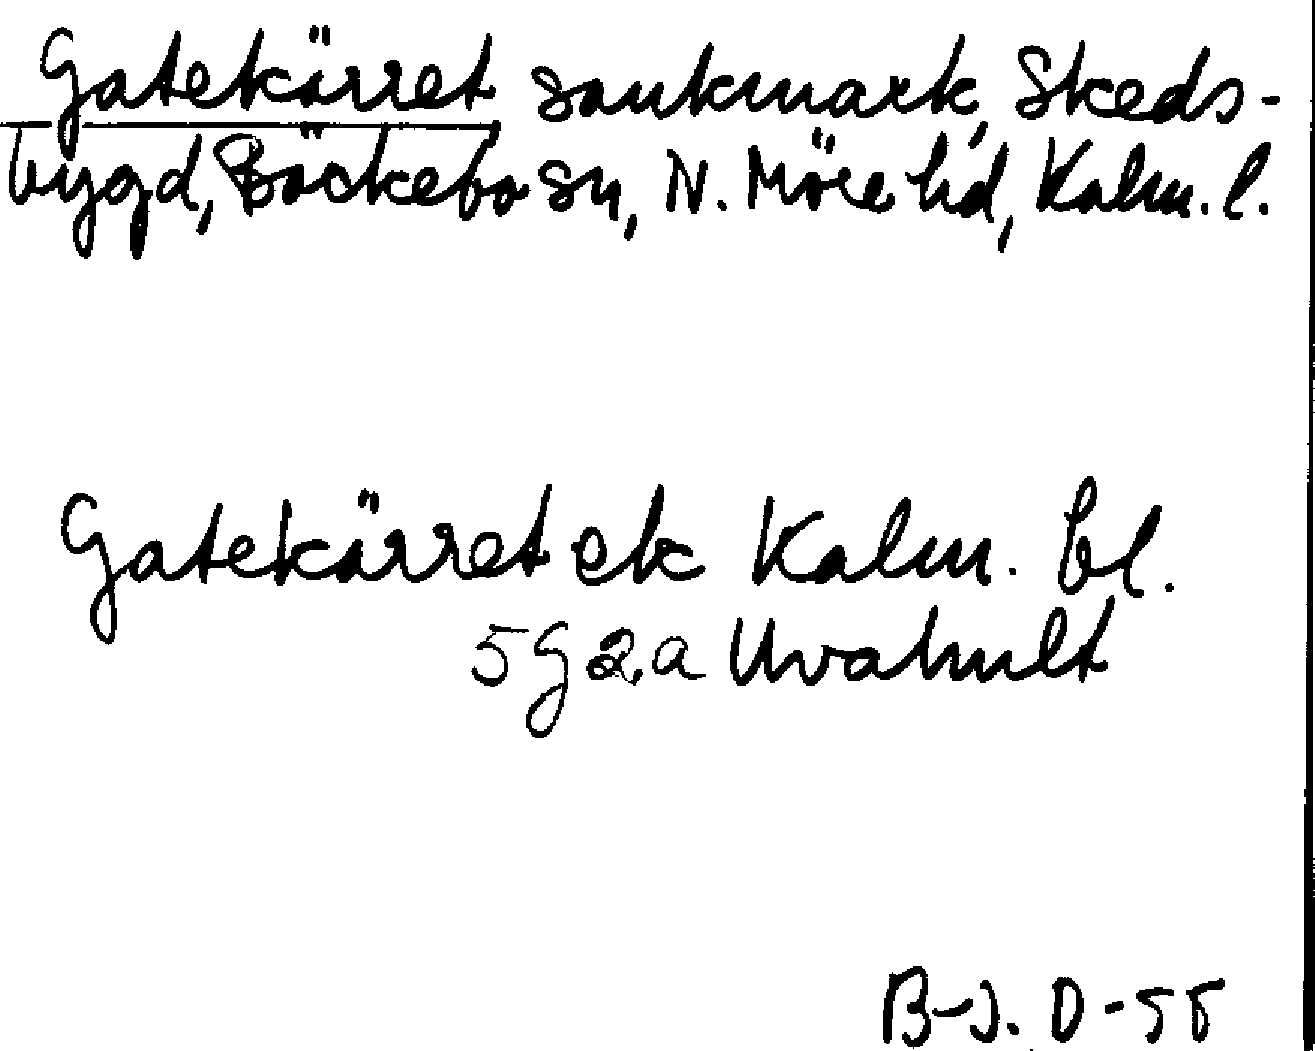 Gatekärret sankmark, Skeds-
bygd, Bäckebo sn, N. Möre hd, Kalm. l.
Gatekärret ek Kalm. bl.
5g 2a Uvahult
B-J. D-55